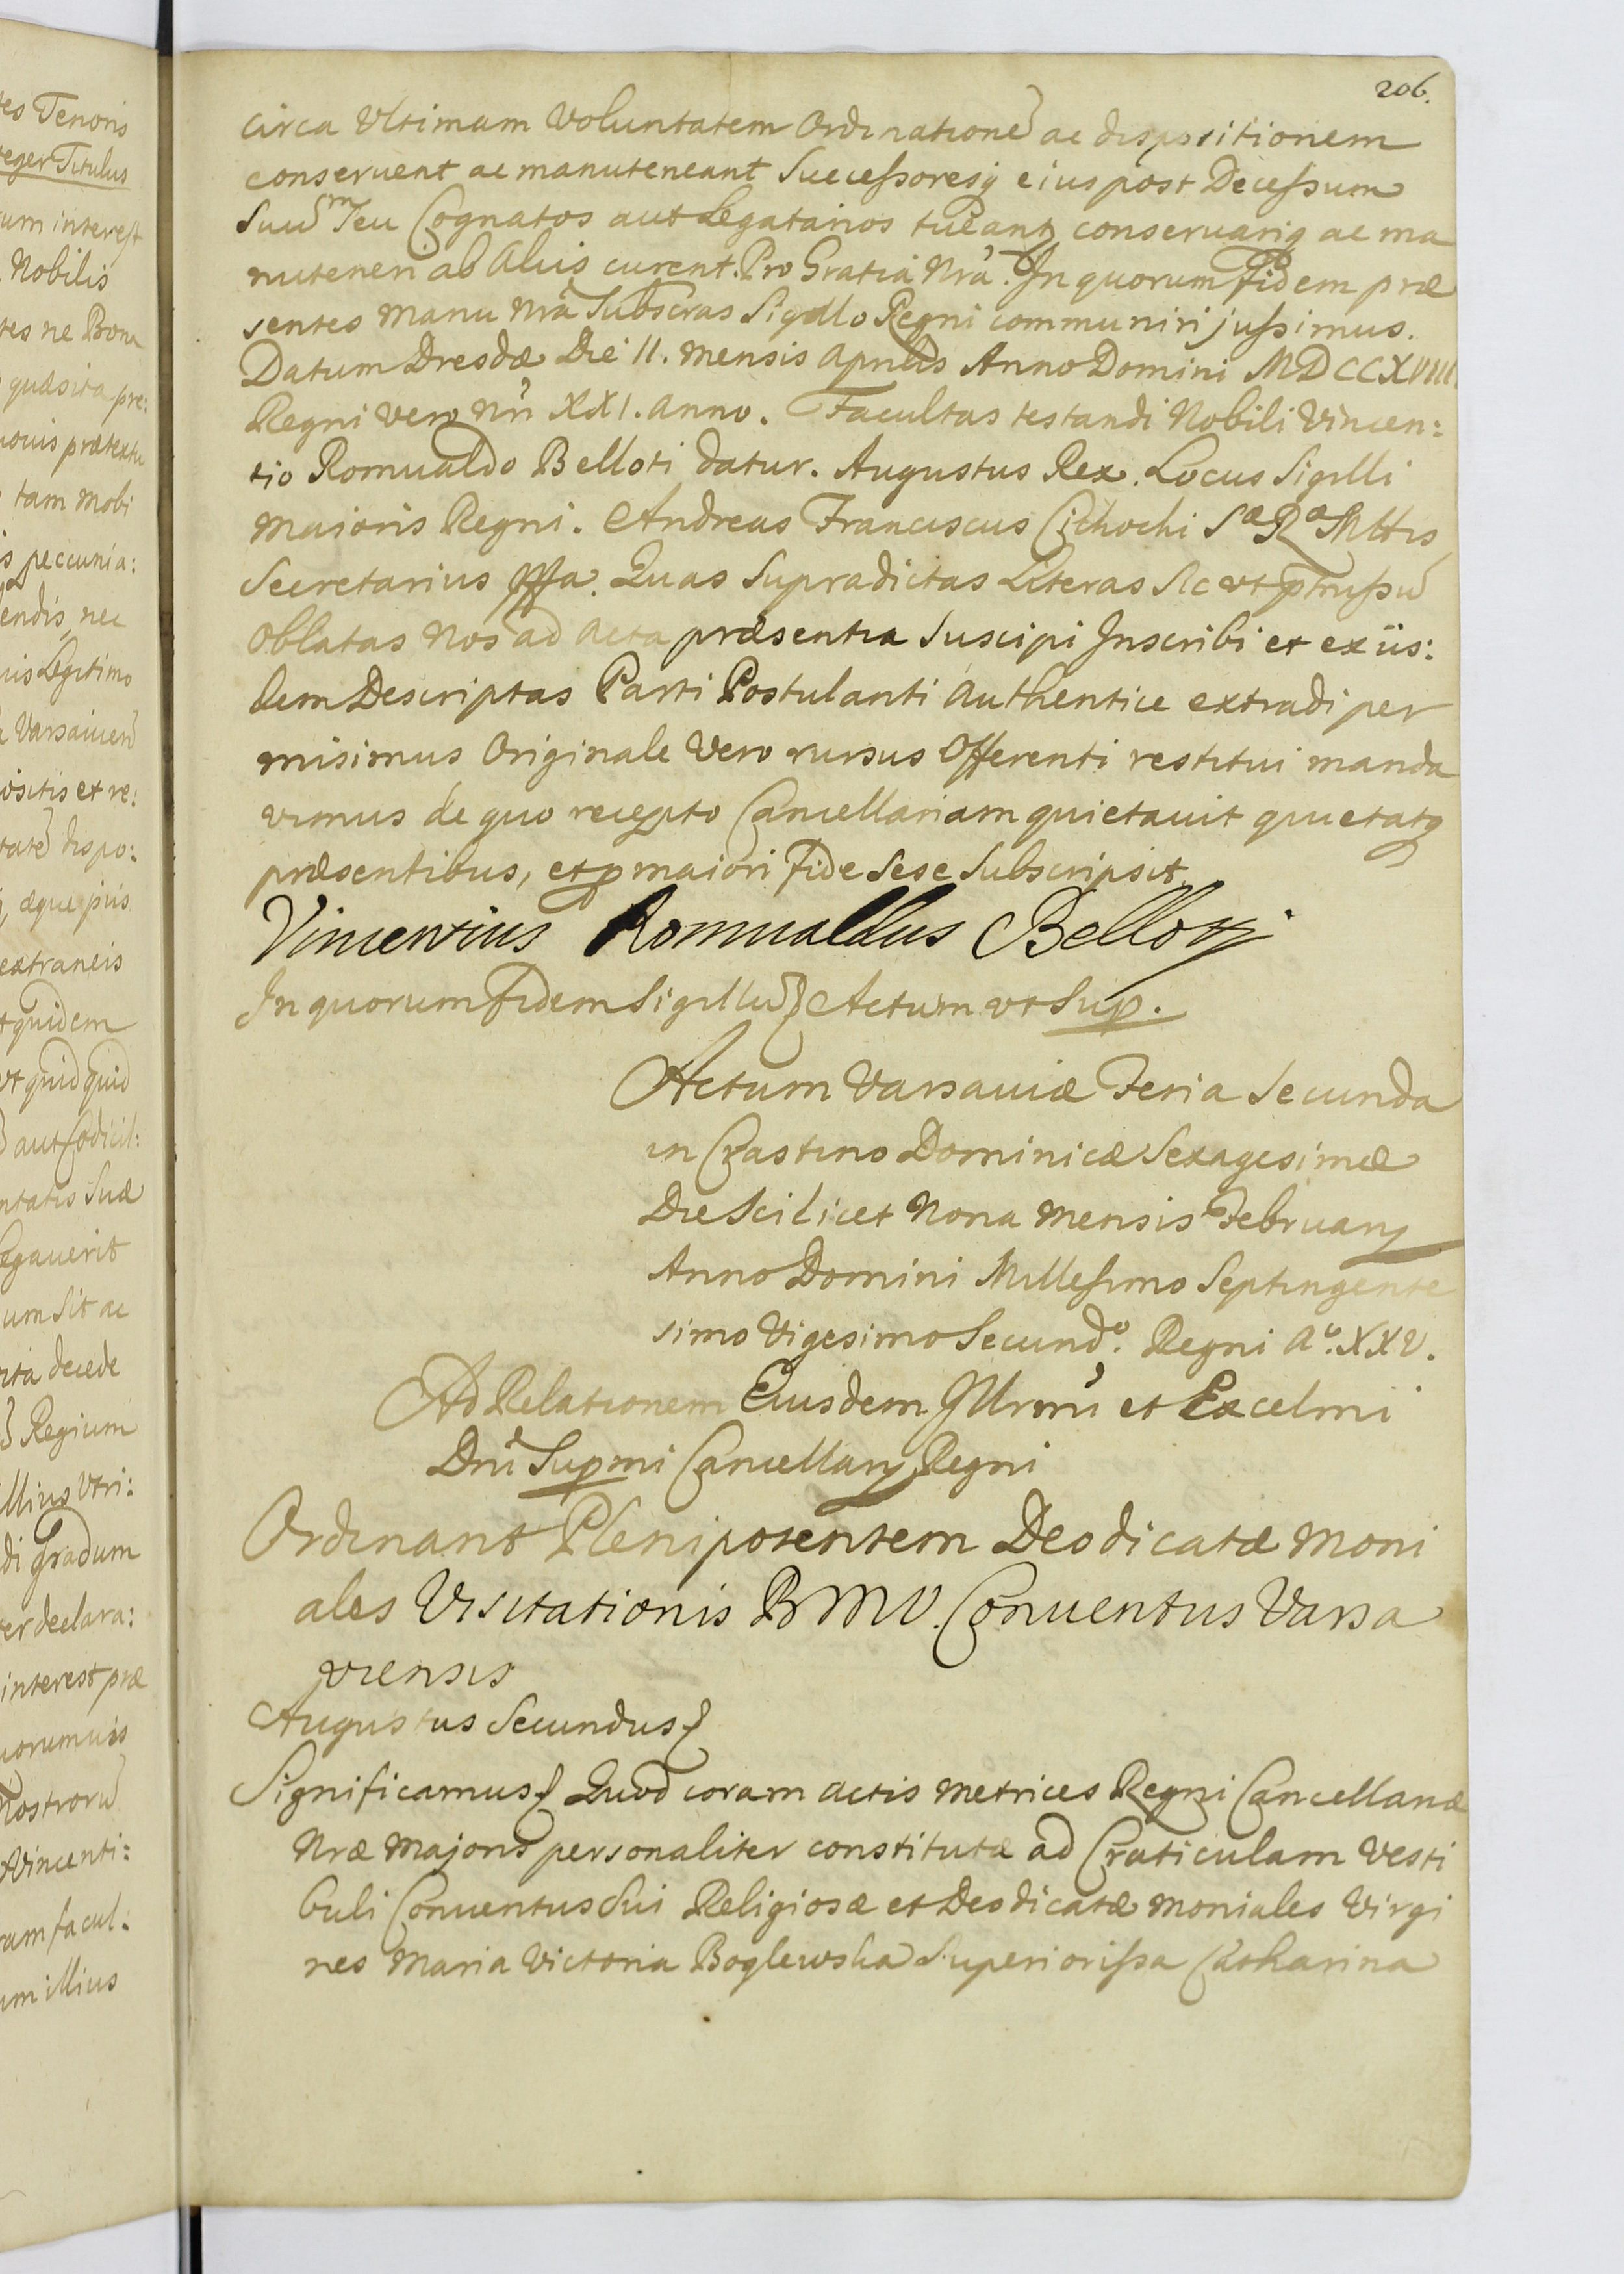 tes Tenoris
teger Titulus
um interest
Nobilis
tes ne Bona
quæsita præ:
novis prætextu
tam mobi
is peccunia:
endis, nec
uis Legitimo
Varsavień
ositis et re:
tatē dispo:
æque piis
extraneis
tquidem
vt quid quid
aut Codicil:
ntatis Suæ
Legauerit
um Sit ac
ita decede
Regium
illius Vtri:
di Gradum
er declara:
interest præ
uorumuis
Nostrorū
Vincenti:
ram facul:
um illius
206.
circa Vltimam Voluntatem Ordinationē ac dispositionem
conseruent ac manuteneant Successoresq̨ eius post Decessum
Suūm Seu Cognatos aut Legatarios tueantꝫ conseruariq̨ ac ma
nuteneri ab Aliis curent. Pro Gratia Nrā. In quorum fidem præ
sentes Manu Nrā Subscras Sigillo Regni communiri jussimus.
Datum Dresdæ Die 11. Mensis Aprilis Anno Domini MDCCXVIII.
Regni vero Nrī XXI. Anno. Facultas testandi Nobili Vincen:
tio Romualdo Belloti datur. Augustus Rex. Locus Sigilli
Maioris Regni. Andreas Franciscus Cichocki Sæ Ræ Mttis
Secretarius mppa. Quas Supradictas Literas Sic vt p̱missū
Oblatas Nos ad Acta præsentia Suscipi Inscribi et ex iis:
dem Descriptas Parti Postulanti Authentice extradi per
misimus Originale Vero rursus Offerenti restitui manda
vimus de quo recepto Cancellariam quietauit quietatq̨
præsentibus, et p̱ maiori fide Sese Subscripsit.
Vincentius Romualdus Bellotj
In quorum fidem Sigillū} Actum vt Sup̱.
Actum Varsauiæ Feria Secunda
in Crastino Dominicæ Sexagesimæ
Die Scilicet Nona Mensis February
Anno Domini Millesimo Septingente
simo Vigesimo Secundo. Regni Ao. XXV.
Ad Relationem Eiusdem Illrmi et Excelmi
Dnī Sup̱mi Cancellary Regni
Ordinant Plenipotentem Deodicatæ Moni
ales Visitationis BMV. Conuentus Varsa
viensis
Augustus Secundus}
Significamus} Quod coram Actis Metrices Regni Cancellariæ
Nræ Majoris personaliter constitutæ ad Craticulam Vesti
buli Conuentus Sui Religiosæ et Deodicatæ Moniales Virgi
nes Maria Victoria Boglewska Superiorissa Catharina